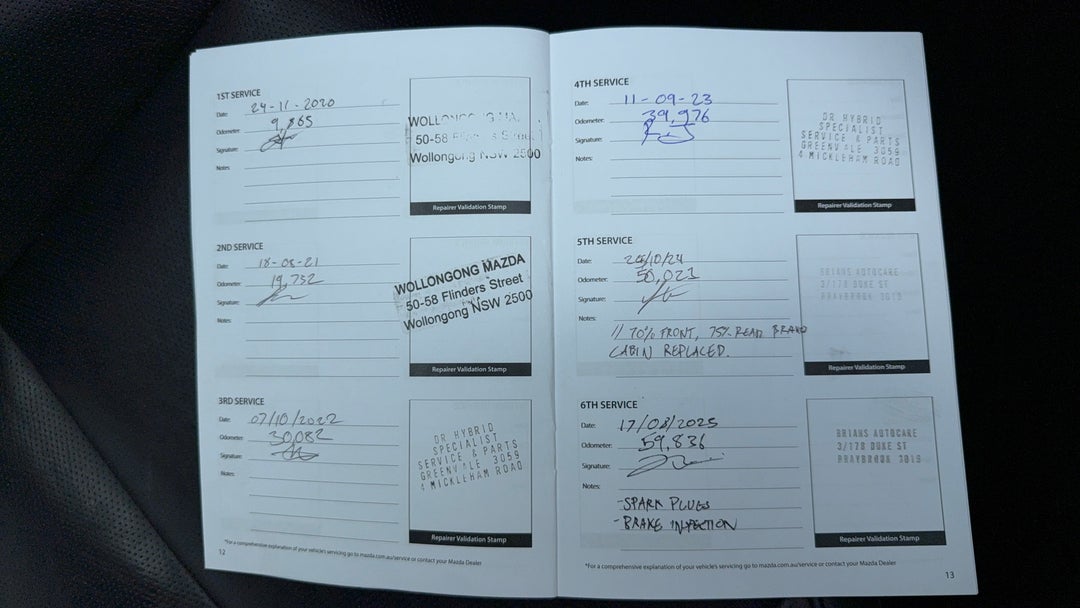 1ST SERVICE
Date: 24-11-2020
Odometer: 9,865
Signature:
Notes:
WOLLONGONG MA
50-58 Flinders Street
Wollongong NSW 2500
Repairer Validation Stamp
2ND SERVICE
Date: 18-08-21
Odometer: 19,732
Signature:
Notes:
WOLLONGONG MAZDA
50-58 Flinders Street
Wollongong NSW 2500
Repairer Validation Stamp
3RD SERVICE
Date: 07/10/2022
Odometer: 30,082
Signature:
Notes:
DR HYBRID
SPECIALIST
SERVICE & PARTS
GREENVALE 3059
4 MICKLEHAM ROAD
Repairer Validation Stamp
*For a comprehensive explanation of your vehicle's servicing go to mazda.com.au/service or contact your Mazda Dealer
12
4TH SERVICE
Date: 11-09-23
Odometer: 39,976
Signature:
Notes:
DR HYBRID
SPECIALIST
SERVICE & PARTS
GREENVALE 3059
4 MICKLEHAM ROAD
Repairer Validation Stamp
5TH SERVICE
Date: /10/24
Odometer: 50,021
Signature:
Notes:
// 70% FRONT, 75% REAR BRAKE
CABIN REPLACED.
BRIANS AUTOCARE
3/178 DUKE ST
BRAYBROOK 3019
Repairer Validation Stamp
6TH SERVICE
Date: 17/08/2025
Odometer: 59,836
Signature:
Notes:
-SPARK PLUGS
-BRAKE INSPECTION
BRIANS AUTOCARE
3/178 DUKE ST
BRAYBROOK 3019
Repairer Validation Stamp
*For a comprehensive explanation of your vehicle's servicing go to mazda.com.au/service or contact your Mazda Dealer
13